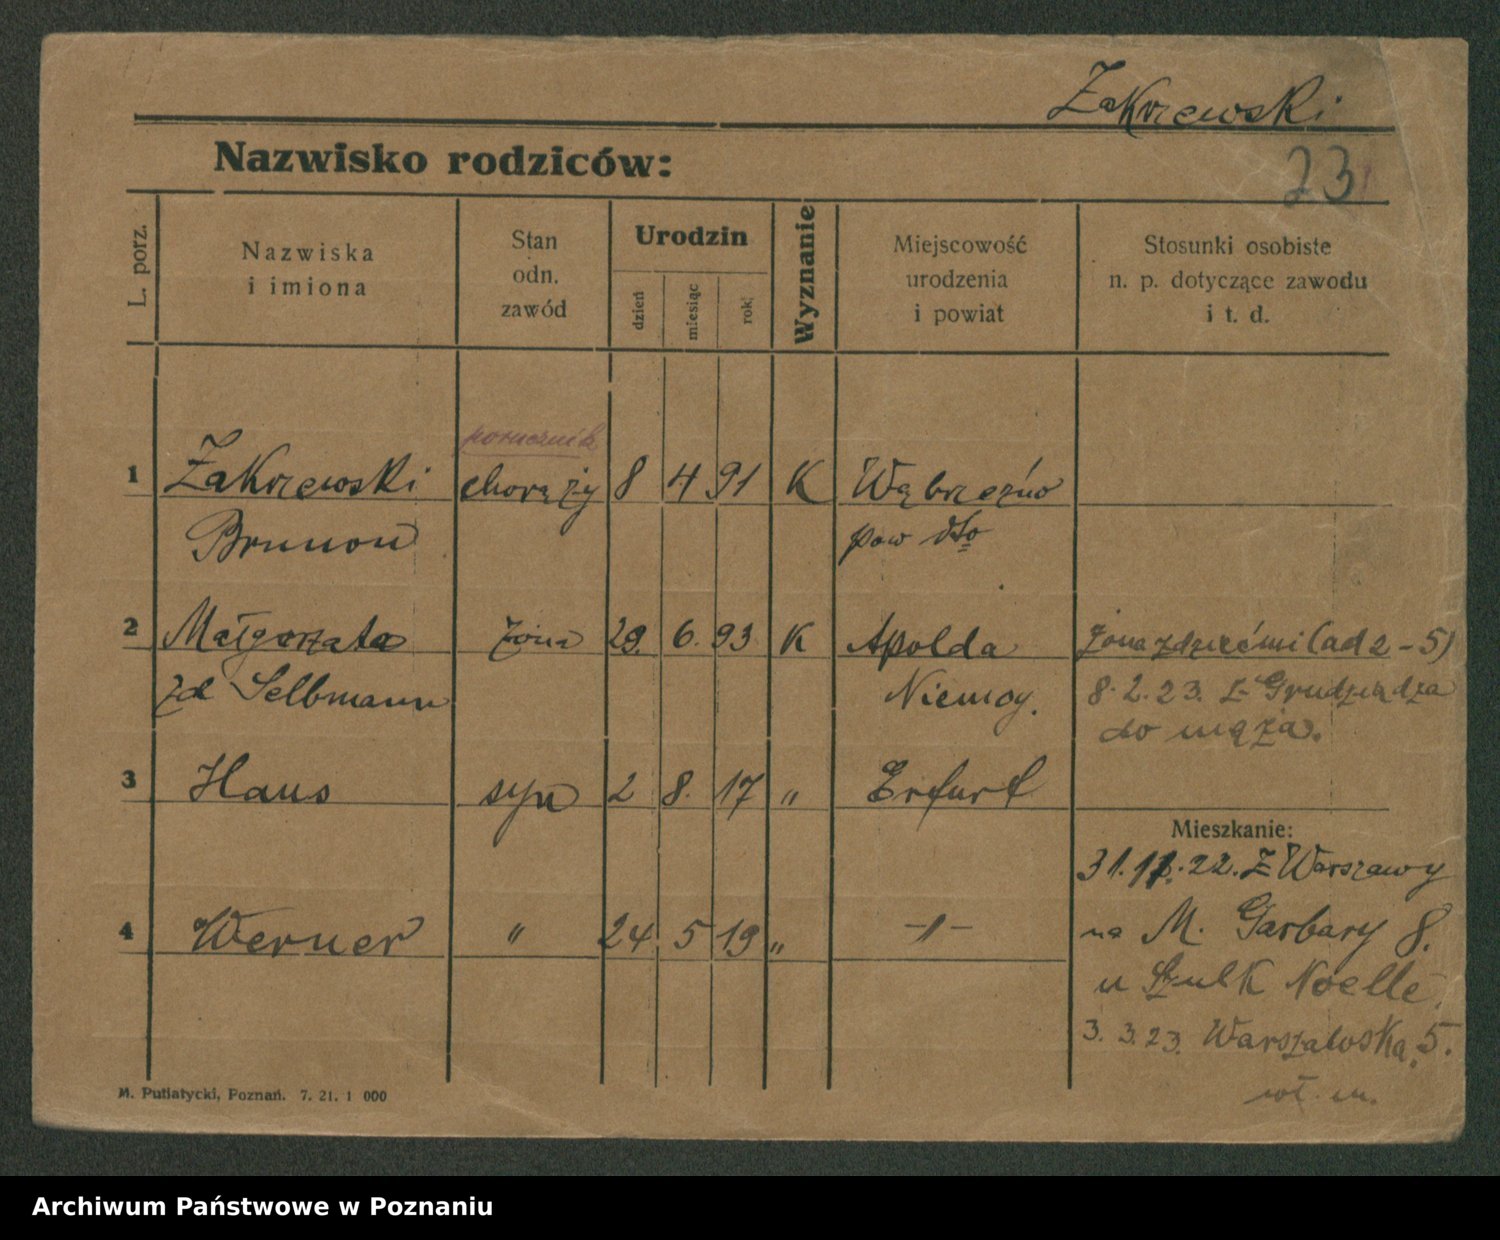 Zakrzewski
Nazwisko rodziców:
23
L. porz.
Nazwiska
i imiona
Stan
odn.
zawód
Urodzin
dzień
miesiąc
rok
Wyznanie
Miejscowość
urodzenia
i powiat
Stosunki osobiste
n. p. dotyczące zawodu
i t. d.
porucznik
1 Zakrzewski chorąży 8 4 91 K Wąbrzeźno
Brunon pow dto
2 Małgorzata żona 29. 6. 93 K Apolda żona z dziećmi (ad 2-5)
zd Selbmann Niemcy. 8.2.23. z Grudziądza
do męża.
3 Hans syn 2 8. 17 " Erfurt
Mieszkanie:
31.11.22. Z Warszawy
4 Werner " 24 5 19 " -"- na M. Garbary 8.
u Szulk Noelle.
3.3.23. Warszawska 5.
wł. m.
M. Putiatycki, Poznań. 7. 21. 1 000
Archiwum Państwowe w Poznaniu